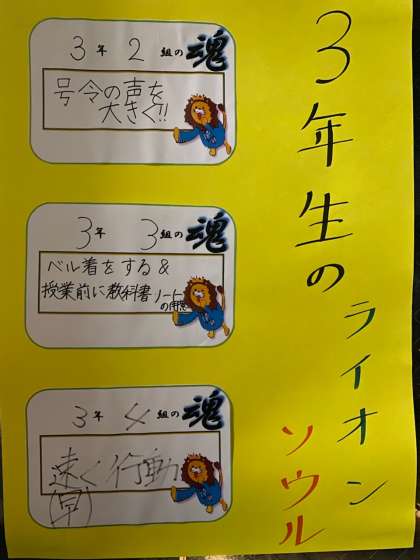 3年生の
ライオン
ソウル
3年 2組の魂
号令の声を
大きく!!
3年 3組の魂
ベル着をする&
授業前に教科書ノート
の用意
3年 4組の魂
速く行動
(早)